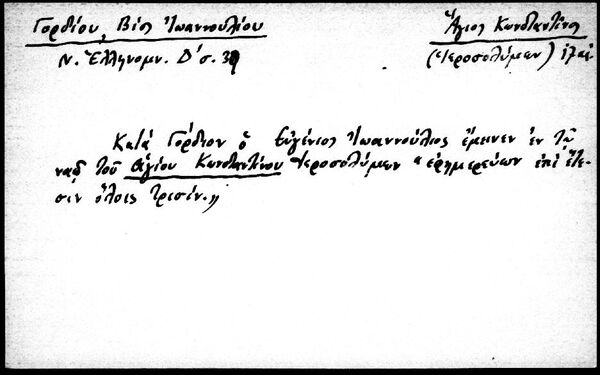 Γορδίου, Βίος Ἰωαννουλίου
Ἅγιος Κωνσταντῖνος
Ν. Ἑλληνομν. Δ΄ σ. 39
(Ἱεροσολύμων)
Κατά Γόρδιον ὁ Εὐγένιος Ἰωαννούλιος ἔμεινεν ἐν τῷ
ναῷ τοῦ Ἁγίου Κωνσταντίνου Ἱεροσολύμων "ἐφημερεύων ἐπί ἔτε-
σιν ὅλοις τρισίν."